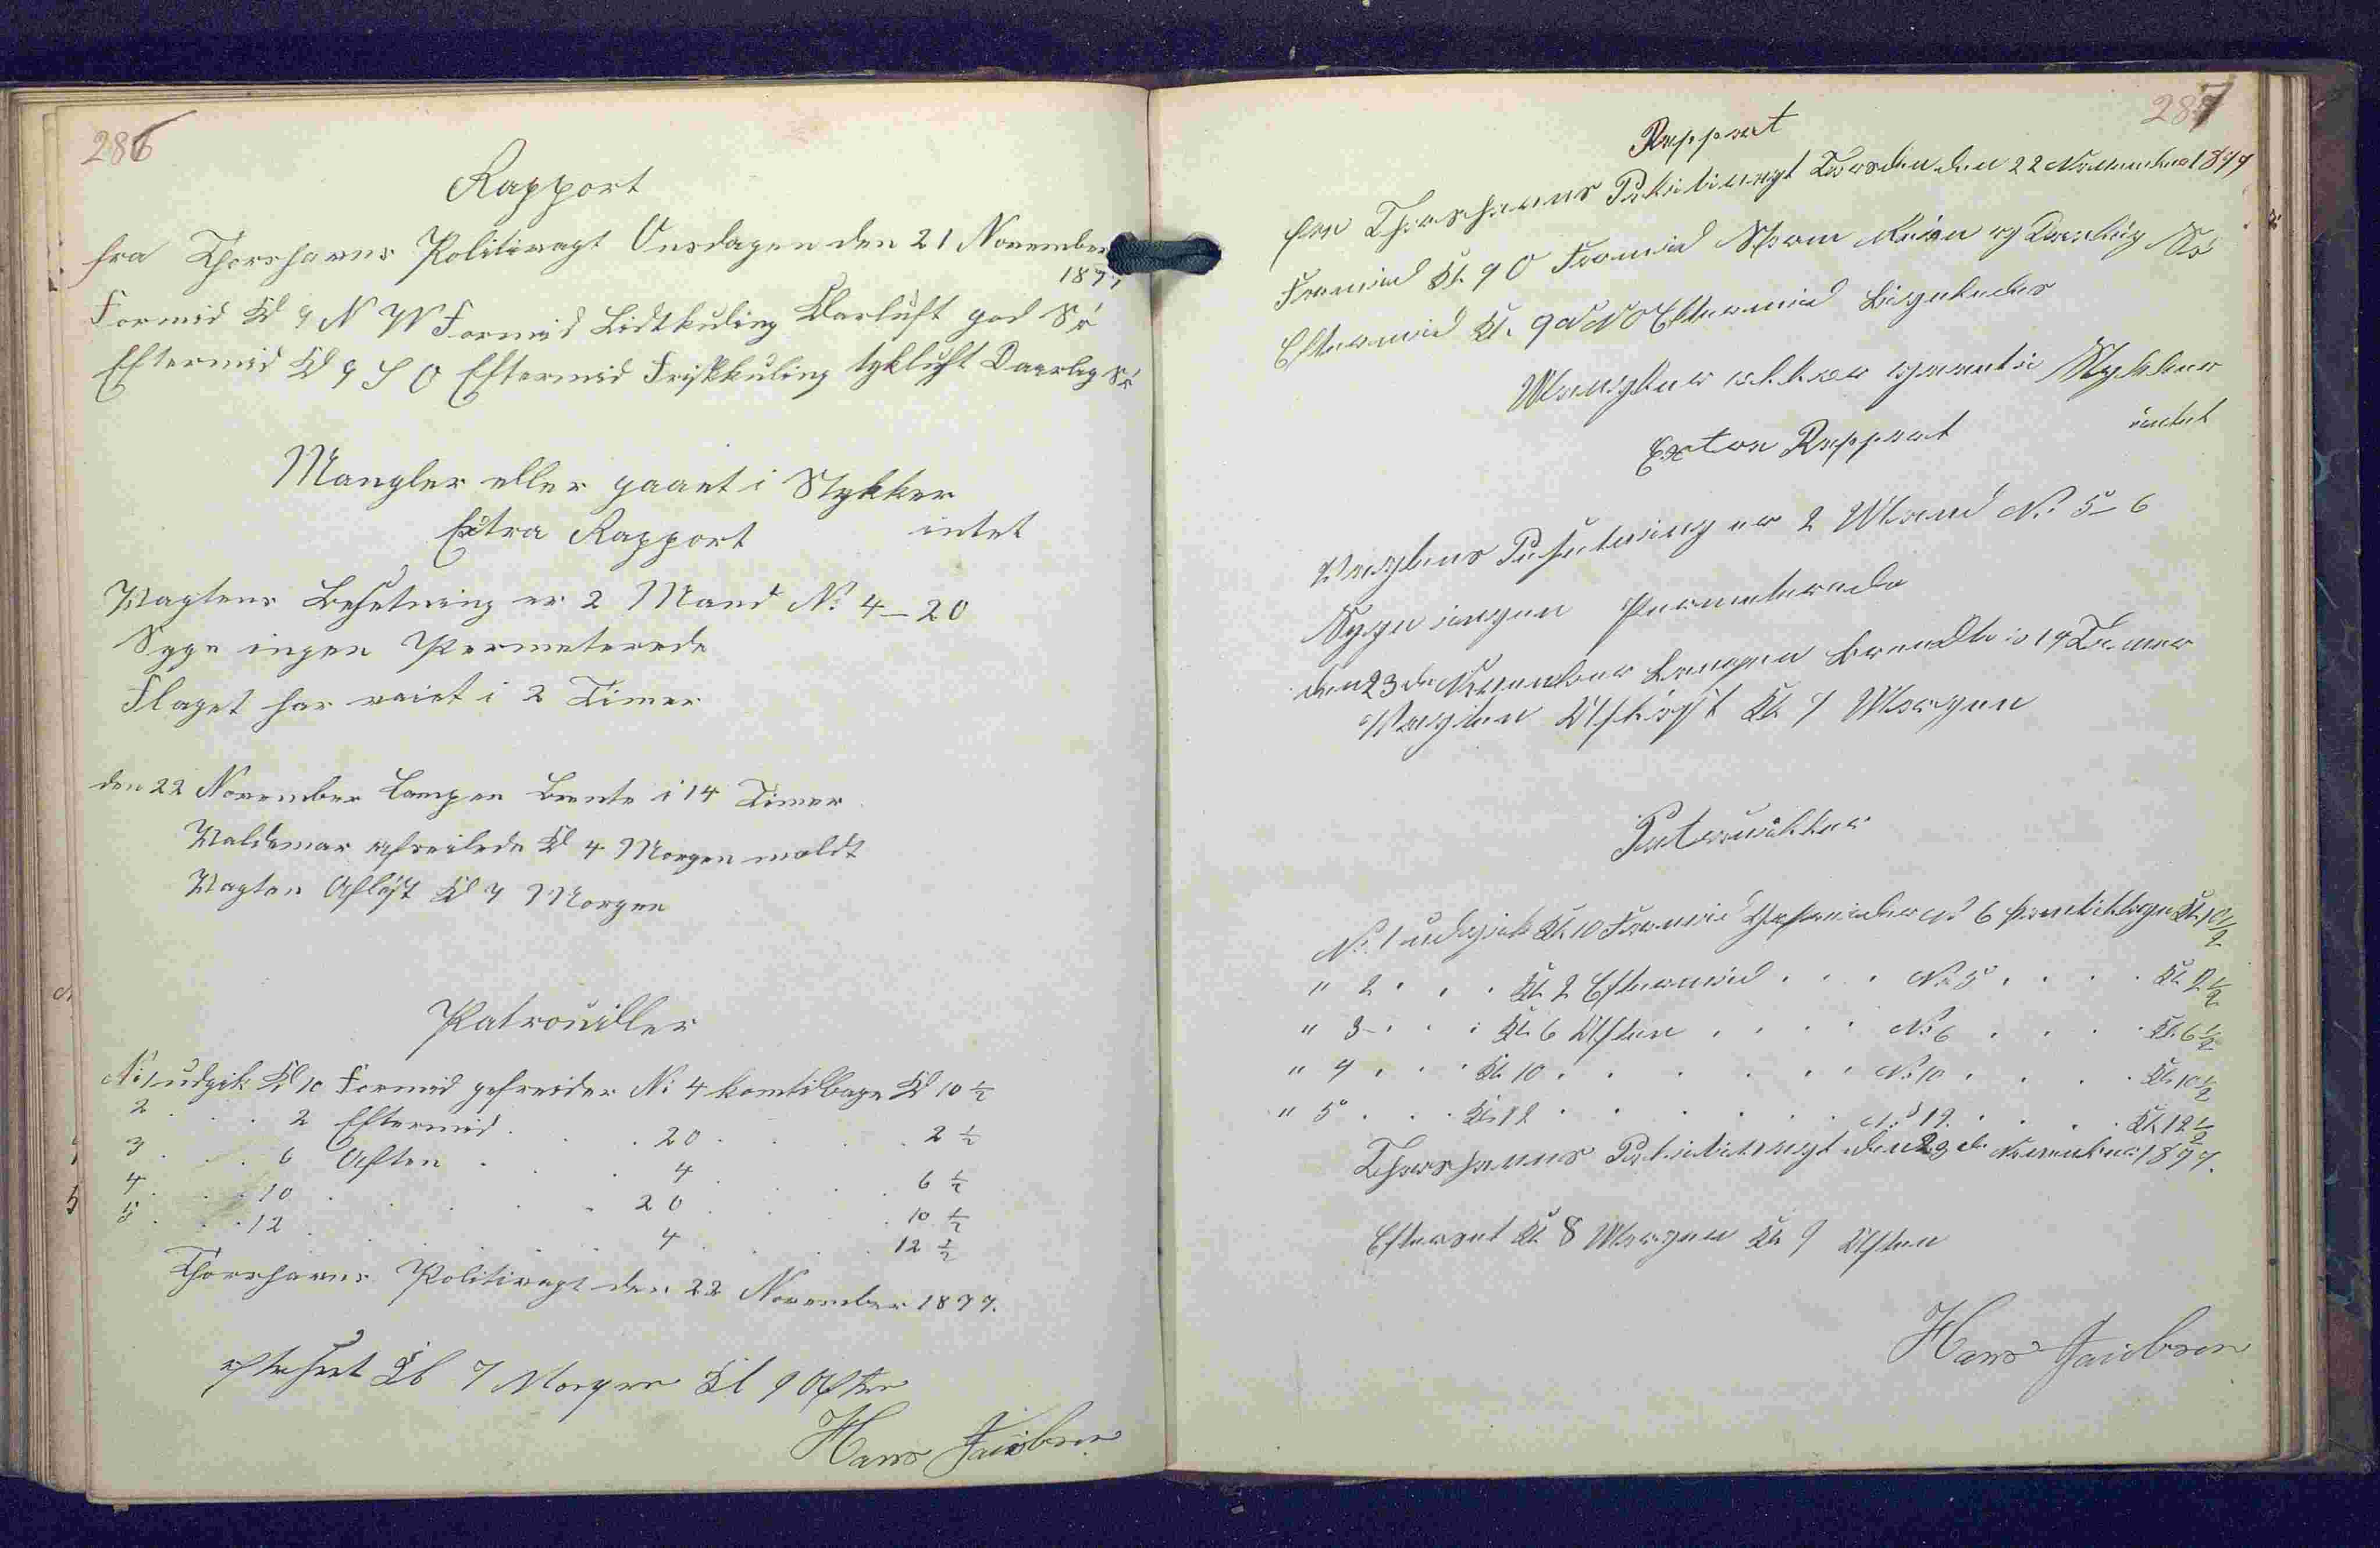 286
Rapport
fra Thorshavns Politivagt Onsdagen den 21 November
1877
Formid Kl 9 N W Formid Lidtkuling Klarluft god Sö
Eftermid Kl 9 S O Eftermid Friskkuling tykluft Daarlig Sö
Mangler eller gaaet i Stykker
Extra Rapport intet
Vagtens Besetning er 2 Mand No 4 – 20
Syge ingen Permeterede
Flaget har vaiet i 2 Timer
den 22 November Lampen Brente i 14 Timer
Valdemar afseilede Kl 4 Morgen meldt
Vagten Aflöst Kl 7 Morgen
Patrouiller
No 1 udgik Kl 10 Formid gefreider No 4 komtilbage Kl 10 ½
2 . . . 2 Eftermid . . . 20 . . . . 2 ½
3 . . . 6 Aften . . . 4 . . . . 6 ½
4 . . . 10 . . . . 20 . . . . 10 ½
5 . . . 12 . . . . 4 . . . . 12 ½
Thorshavns Politivagt den 22 November 1877.
efterset Kl 7 Morgen Kl 9 Aften
Hans Jacobsen
287
Rapport
fra Thorshavns Politivagt Torsden den 22 November 1877
Formid Kl. 9 O Formid Storm Regn og Daarlig Sö
Eftermid Kl. 9 NO Eftermid Ligeledes
Mangler eller gaaet i Stykker
Extra Rapport intet
Vagtens Besetning er 2 Mand No 5 – 6
Syge ingen Permeterede
den 23de November Lampen brendte i 14 Timer
Vagten Aflöst Kl 7 Morgen
Patrouiller
No. 1 udgik Kl. 10 Formid Gefreider No 6 komtilbage Kl. 10 ½
" 2 . . . Kl. 2 Eftermid . . . No 5 . . . . Kl. 2 ½
" 3 . . . Kl. 6 Aften . . . . No 6 . . . . Kl. 6 ½
" 4 . . . Kl. 10 . . . . . . No 10 . . . . Kl. 10 ½
" 5 . . . Kl. 12 . . . . . . No 12 . . . . Kl. 12 ½
Thorshavns Politivagt den 23de November 1877.
Efterset Kl. 8 Morgen Kl. 9 Aften
Hans Jacobsen